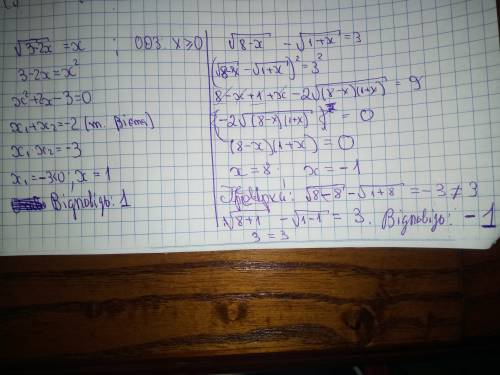 √3-2x = x ; ОДЗ. x ≥ 0
3-2x = x²
x²+2x-3=0
x₁+x₂=-2 (т. Вієта)
x₁ x₂ = -3
x₁=-3<0, x = 1
Відповідь: 1
√8-x - √1+x = 3
(√8-x - √1+x)² = 3²
8-x+1+x-2√(8-x)(1+x) = 9
-2√(8-x)(1+x) = 0
(8-x)(1+x) = 0
x = 8, x = -1
√8-8 - √1+8 = -3 ≠ 3
√8+1 - √1-1 = 3. Відповідь: -1
3 = 3